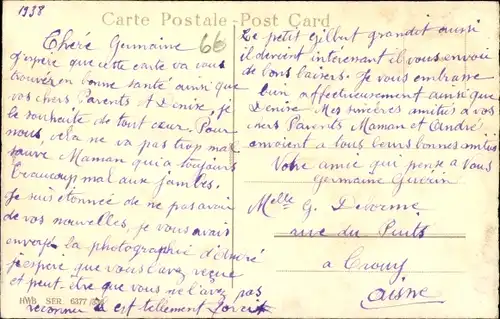 1938
Carte Postale - Post Card
66
Chère Germaine
J'espère que cette carte va vous
trouver en bonne santé ainsi que
vos chers Parents et Denise, je
le souhaite de tout cœur. Pour
nous, cela ne va pas trop mal
sauf Maman qui a toujours
beaucoup mal aux jambes.
Je suis étonnée de ne pas avoir
de vos nouvelles, je vous avais
envoyé la photographie d'André
j'espère que vous l'avez reçue
et peut être que vous ne l'avez pas
reconnu il est tellement forcit
Le petit Gilbert grandit aussi
il devient intéressant il vous envoie
de bons baisers. Je vous embrasse
bien affectueusement ainsi que
Denise. Mes sincères amitiés à vos
chers Parents, Maman et André
envoient à tous leurs bonnes amitiés
Votre amie qui pense à vous
Germaine Guérin
Melle G. Delorme
rue du Puits
à Crouy
Aisne
HWB SER. 6377